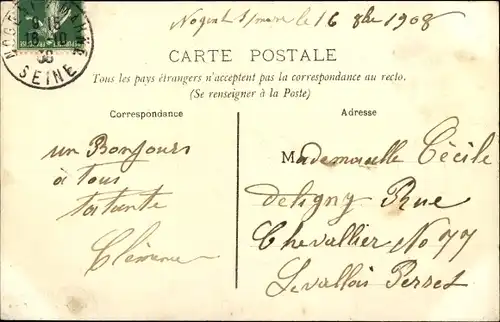 Nogent s/marne le 16 8bre 1908
NOGENT S MARNE
9 15
16 10
08
SEINE
CARTE POSTALE
Tous les pays étrangers n'acceptent pas la correspondance au recto.
(Se renseigner à la Poste)
Correspondance
un Bonjours
à tous
ta tante
Clémence
Adresse
Mademoiselle Cécile
deligny Rue
Chevallier No 77
Levallois Perret